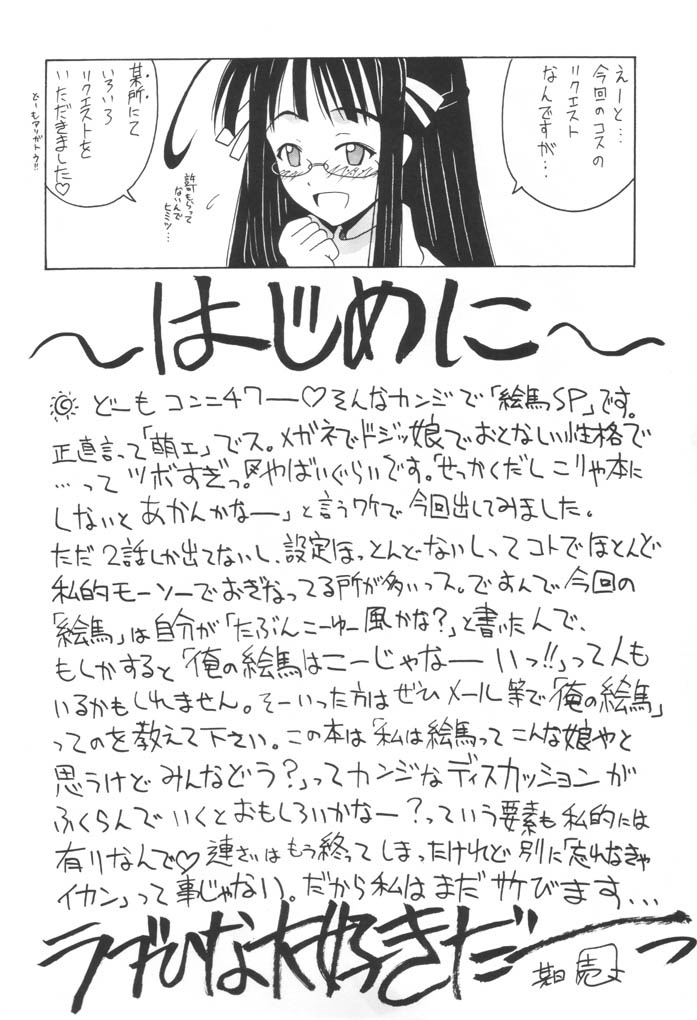 えーと…
今回のコスの
リクエスト
なんですが…
某所にて
いろいろ
リクエストを
いただきました♡
どーもアリガトウ!!
許可もらって
ないんで
ヒミツ…
～はじめに～
どーも コンニチワー♡そんなカンジで「絵馬SP」です。
正直言って「萌エ」でス。メガネでドジッ娘でおとなしい性格で
…って ツボすぎっ。〆やばいぐらいです。「せっかくだし こりゃ本に
しないと あかんかなー」と言うワケで今回出してみました。
ただ2話しか出てないし、設定ほっとんどないしってコトでほとんど
私的モーソーでおぎなってる所が多いっス。ですんで今回の
「絵馬」は自分が「たぶんこーゆー風かな?」と書いたんで、
もしかすると「俺の絵馬はこーじゃなーいっ!!」って人も
いるかもしれません。そーいった方はぜひメール等で「俺の絵馬」
ってのを教えて下さい。この本は「私は絵馬ってこんな娘やと
思うけど みんなどう?」ってカンジなディスカッションが
ふくらんでいくとおもしろいかなー?っていう要素も私的には
有りなんで♡連さいはもう終ってしまったけれど別に「忘れなきゃ
イカン」って事じゃない。だから私はまだサケびます…
ラブひな大好きだーーっ